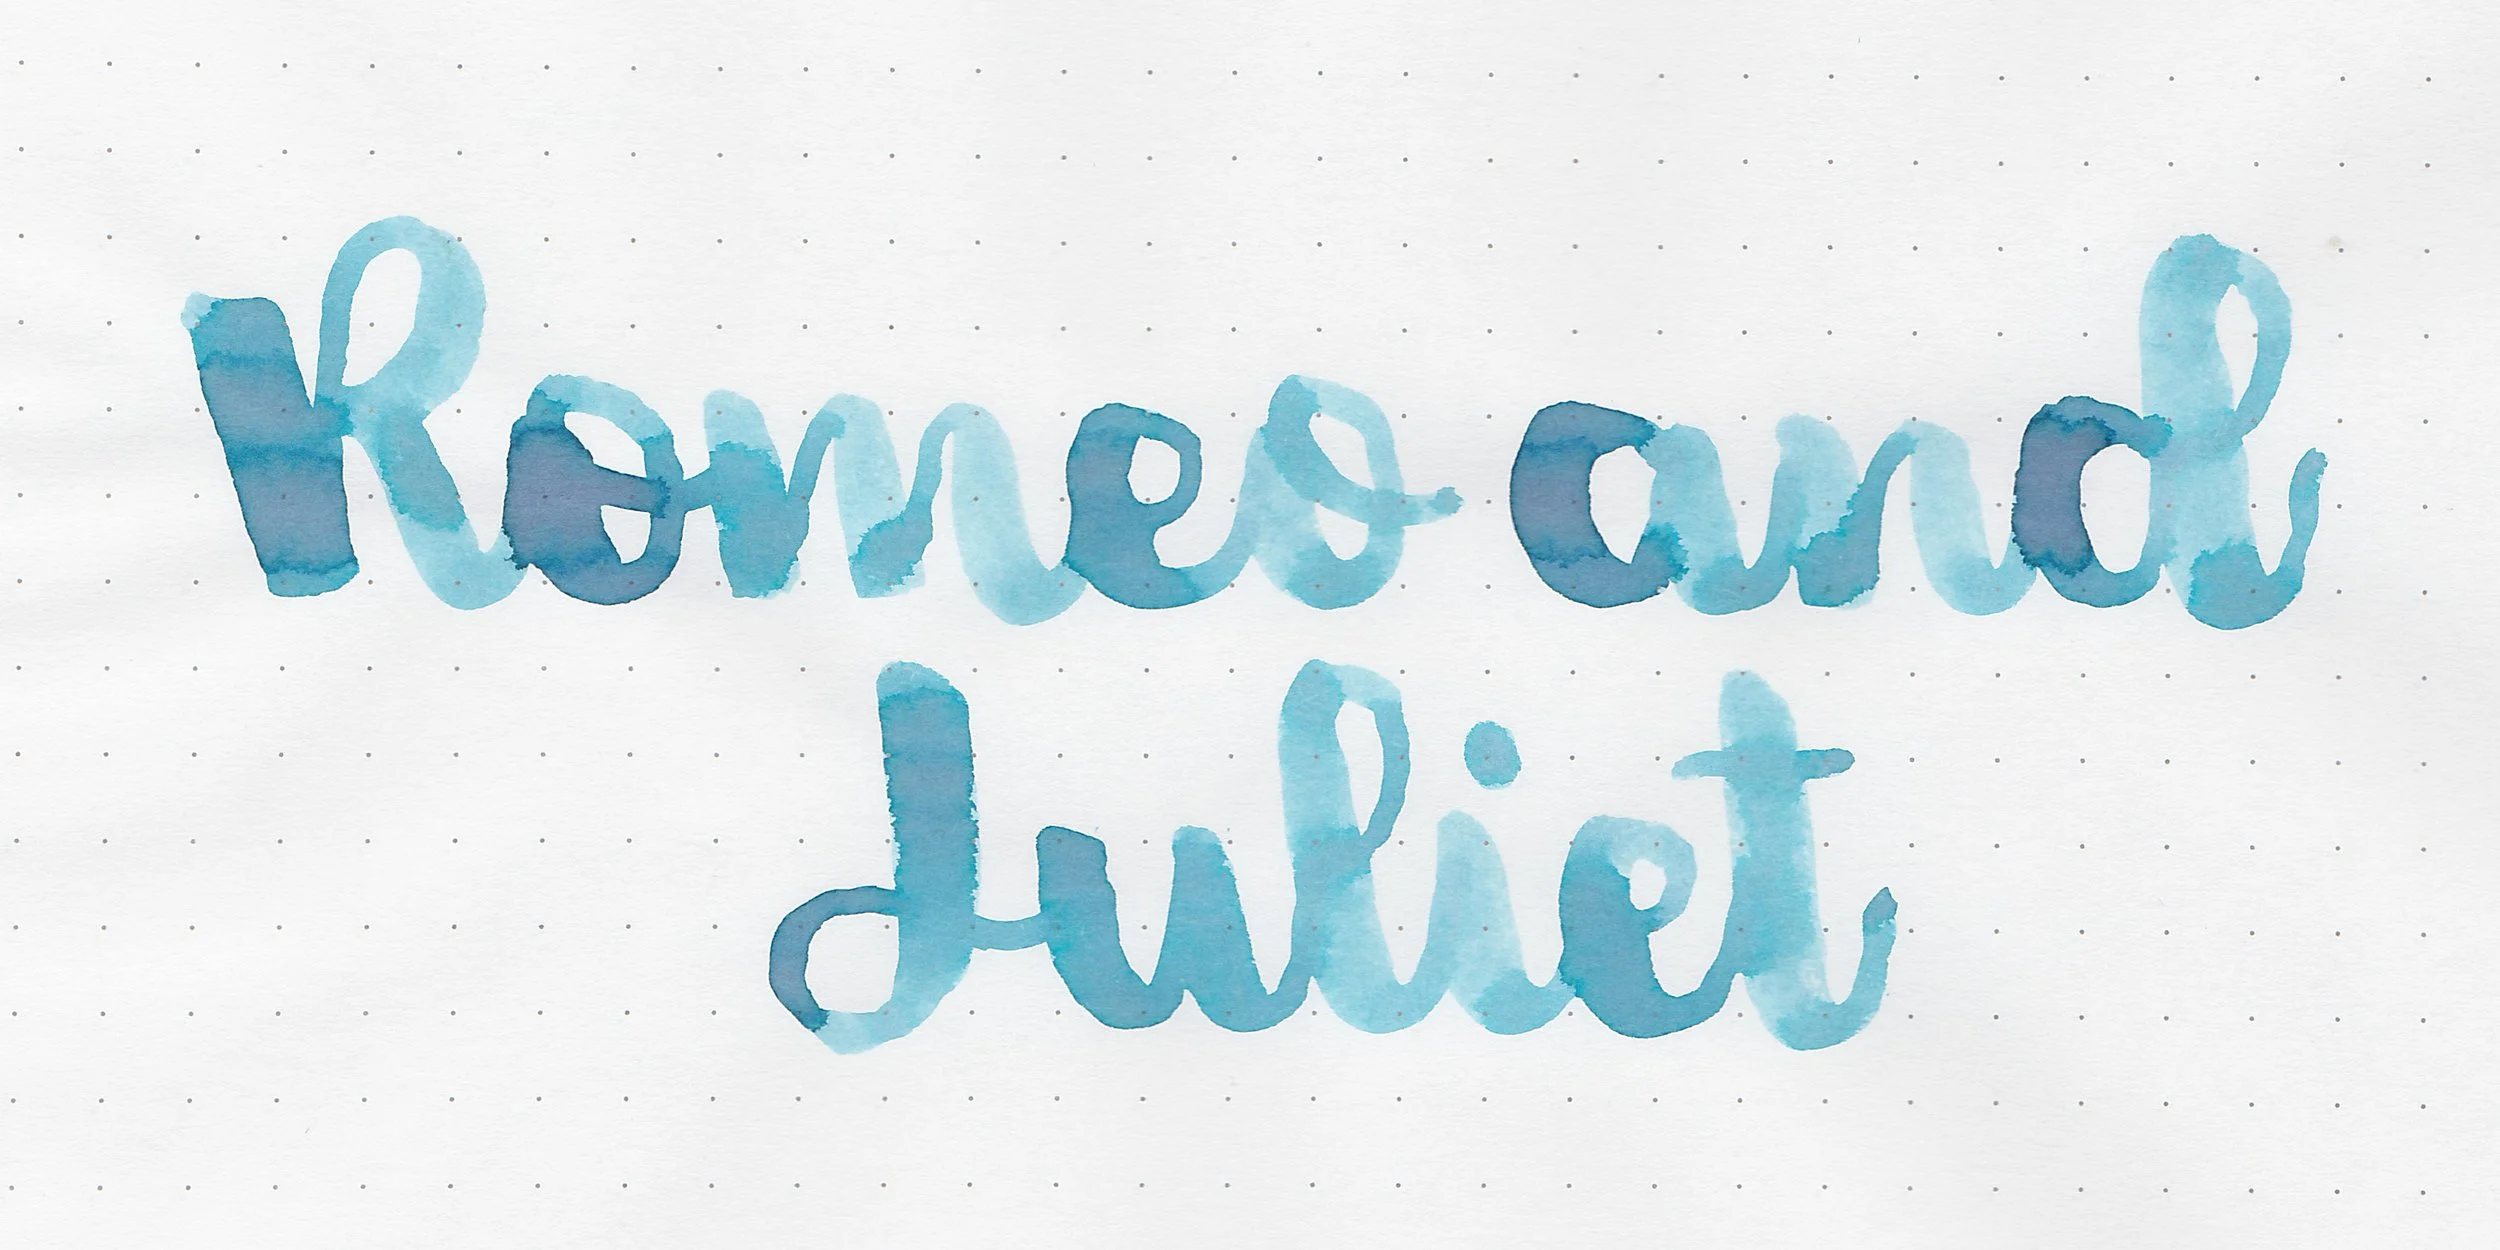 Romeo and
Juliet